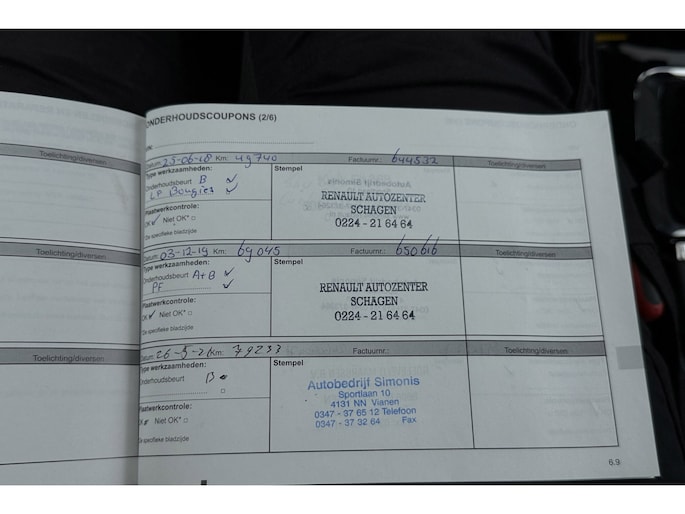 ONDERHOUDSCOUPONS (2/6)
Toelichting/diversen
Datum: 25-06-18 Km: 49740 Factuurnr.: 644532 Toelichting/diversen
Type werkzaamheden: Stempel
Onderhoudsbeurt B ✓
LP Bougies ✓
Plaatwerkcontrole:
OK ✓ Niet OK* □
Zie specifieke bladzijde
RENAULT AUTOZENTER
SCHAGEN
0224 - 21 64 64
Toelichting/diversen
Datum: 03-12-19 Km: 69045 Factuurnr.: 650616 Toelichting/diversen
Type werkzaamheden: Stempel
Onderhoudsbeurt A+B ✓
PF ✓
Plaatwerkcontrole:
OK ✓ Niet OK* □
Zie specifieke bladzijde
RENAULT AUTOZENTER
SCHAGEN
0224 - 21 64 64
Toelichting/diversen
Datum: 26-5-21 Km: 79233 Factuurnr.: Toelichting/diversen
Type werkzaamheden: Stempel
Onderhoudsbeurt B
Plaatwerkcontrole:
OK Niet OK* □
Zie specifieke bladzijde
Autobedrijf Simonis
Sportlaan 10
4131 NN Vianen
0347 - 37 65 12 Telefoon
0347 - 37 32 64 Fax
6.9